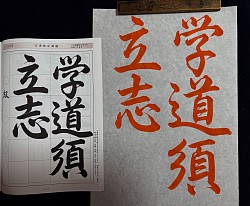 学道須
立志
学道須
立志